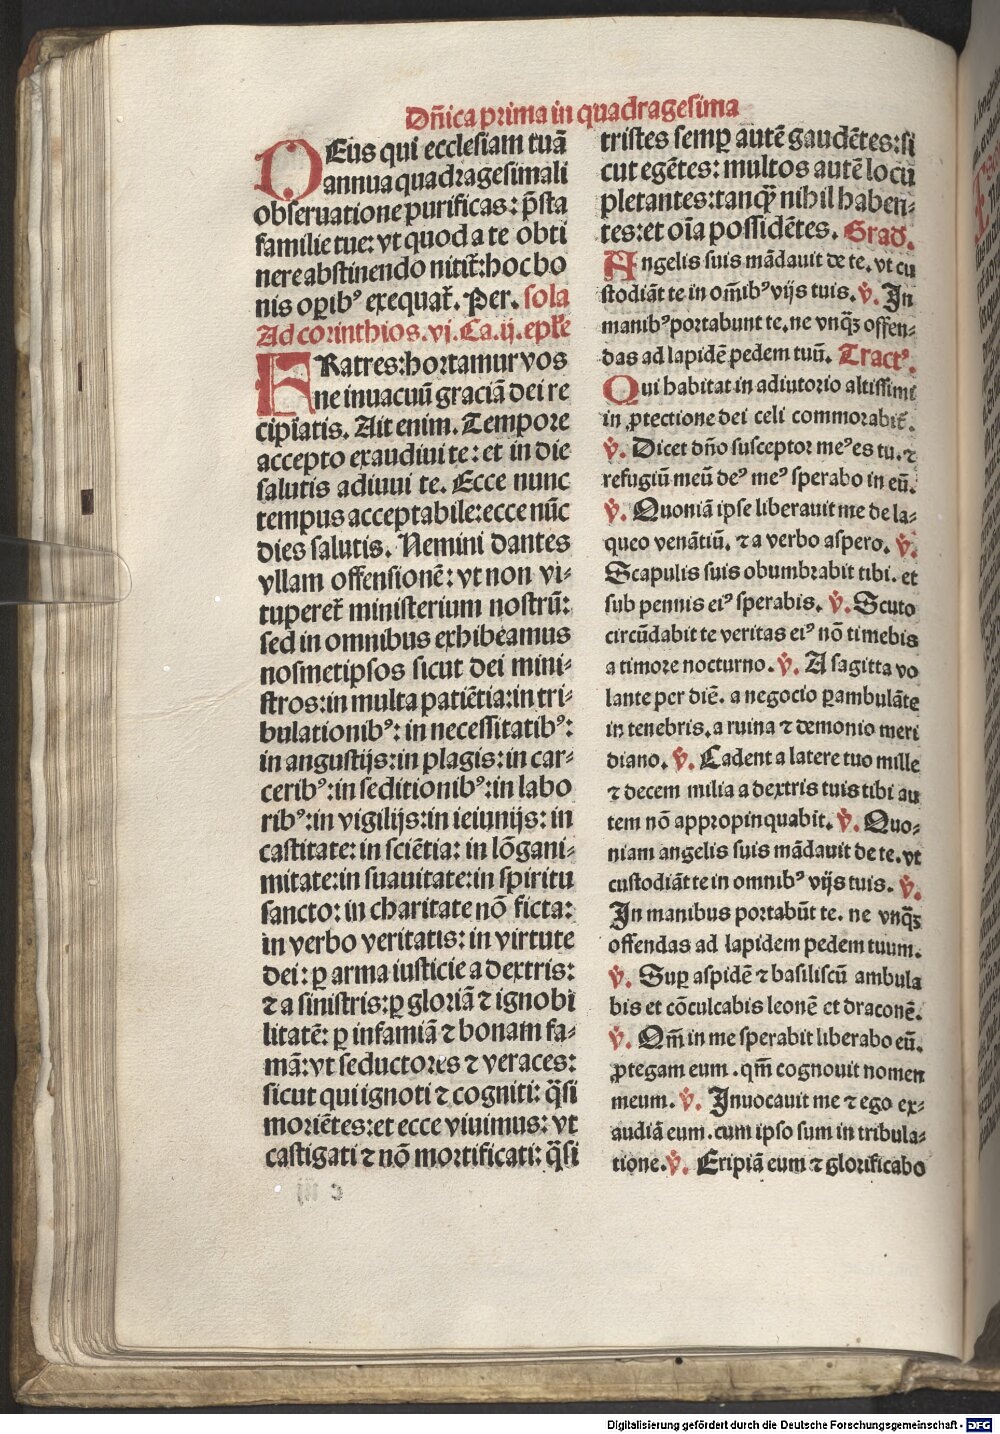 Dñica prima in quadragesima
DEus qui ecclesiam tuã
annua quadragesimali
obseruatione purificas: p̃sta
familie tue: vt quod a te obti
nere abstinendo nitit᷑: hoc bo
nis oꝑibꝰ exequat᷑. Per. sola
Ad corinthios. vj. Ca. ij. epl̃e
FRatres: hortamur vos
ne in vacuũ graciã dei re
cipiatis. Ait enim. Tempore
accepto exaudiui te: et in die
salutis adiuui te. Ecce nunc
tempus acceptabile: ecce nũc
dies salutis. Nemini dantes
vllam offensionẽ: vt non vi⸗
tuperet᷑ ministerium nostrũ:
sed in omnibus exhibeamus
nosmetipsos sicut dei mini⸗
stros: in multa patiẽtia: in tri⸗
bulationibꝰ: in necessitatibꝰ:
in angustijs: in plagis: in car⸗
ceribꝰ: in seditionibꝰ: in labo
ribꝰ: in vigilijs: in ieiunijs: in
castitate: in sciẽtia: in lõgani⸗
mitate: in suauitate: in spiritu
sancto: in charitate nõ ficta:
in verbo veritatis: in virtute
dei: ꝑ arma iusticie a dextris:
⁊ a sinistris: ꝑ gloriã ⁊ ignobi
litatẽ: ꝑ infamiã ⁊ bonam fa⸗
mã: vt seductores ⁊ veraces:
sicut qui ignoti ⁊ cogniti: q̃si
moriẽtes: et ecce viuimus: vt
castigati ⁊ nõ mortificati: q̃si
tristes semꝑ autẽ gaudẽtes: si
cut egẽtes: multos autẽ locũ
pletantes: tanqȝ̃ nihil haben⸗
tes: et oĩa possidẽtes. Grad.
Angelis suis mãdauit de te. vt cu
stodiãt te in om̃ibꝰ vijs tuis. v̾. In
manibꝰ portabunt te. ne vnqȝ̃ offen⸗
das ad lapidẽ pedem tuũ. Tractꝰ.
Qui habitat in adiutorio altissimi
in ꝓtectione dei celi commorabit᷑.
v̾. Dicet dño susceptor meꝰ es tu. ⁊
refugiũ meũ deꝰ meꝰ sperabo in eũ.
v̾. Quoniã ipse liberauit me de la⸗
queo venãtiũ. ⁊ a verbo aspero. v̾.
Scapulis suis obumbrabit tibi. et
sub pennis eiꝰ sperabis. v̾. Scuto
circũdabit te veritas eiꝰ nõ timebis
a timore nocturno. v̾. A sagitta vo
lante per diẽ. a negocio ꝑambulãte
in tenebris. a ruina ⁊ demonio meri
diano. v̾. Cadent a latere tuo mille
⁊ decem milia a dextris tuis tibi au
tem nõ appropinquabit. v̾. Quo⸗
niam angelis suis mãdauit de te. vt
custodiãt te in omnibꝰ vijs tuis. v̾.
In manibus portabũt te. ne vnqȝ̃
offendas ad lapidem pedem tuum.
v̾. Suꝑ aspidẽ ⁊ basiliscũ ambula
bis et cõculcabis leonẽ et draconẽ.
v̾. Qm̃ in me sperabit liberabo eũ.
ꝓtegam eum. qm̃ cognouit nomen
meum. v̾. Inuocauit me ⁊ ego ex⸗
audiã eum. cum ipso sum in tribula⸗
tione. v̾. Eripiã eum ⁊ glorificabo
Digitalisierung gefördert durch die Deutsche Forschungsgemeinschaft - DFG